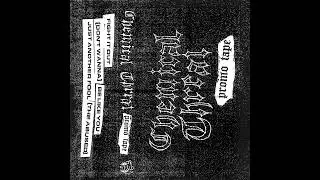 FIGHT IT OUT
(DON'T WANNA) BE LIKE YOU
JUST ANOTHER FOOL (THE ABUSED)
Chemical Threat promo tape
Chemical
Threat
promo tape